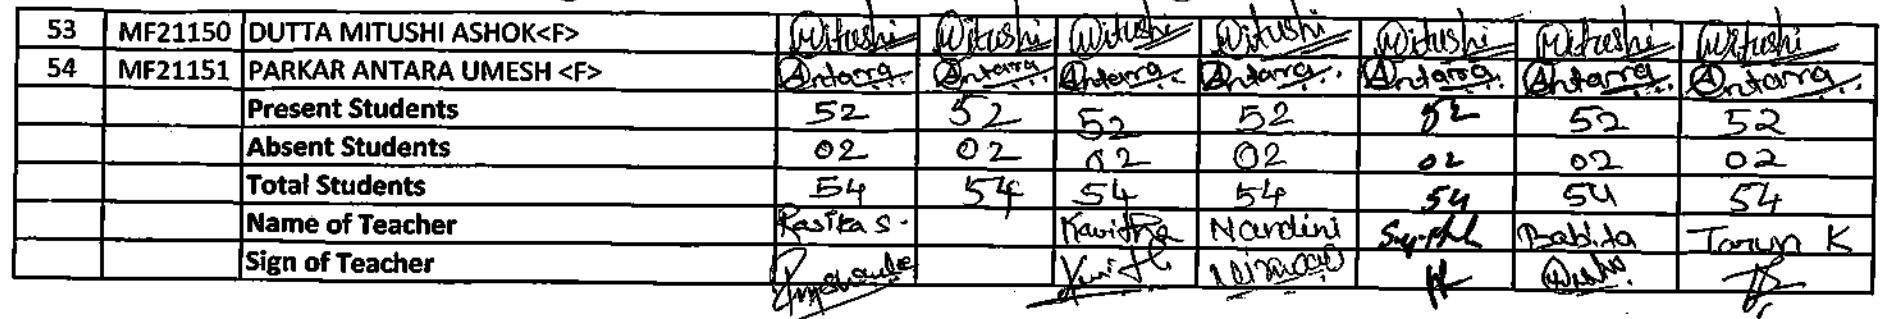 53 MF21150 DUTTA MITUSHI ASHOK<F> Mitushi Mitushi Mitushi Mitushi Mitushi Mitushi Mitushi
54 MF21151 PARKAR ANTARA UMESH <F> Antara Antara Antara Antara Antara Antara Antara
Present Students 52 52 52 52 52 52 52
Absent Students 02 02 02 02 02 02 02
Total Students 54 54 54 54 54 54 54
Name of Teacher Rasika S. Kavitha Nandini Babita Tarun K
Sign of Teacher